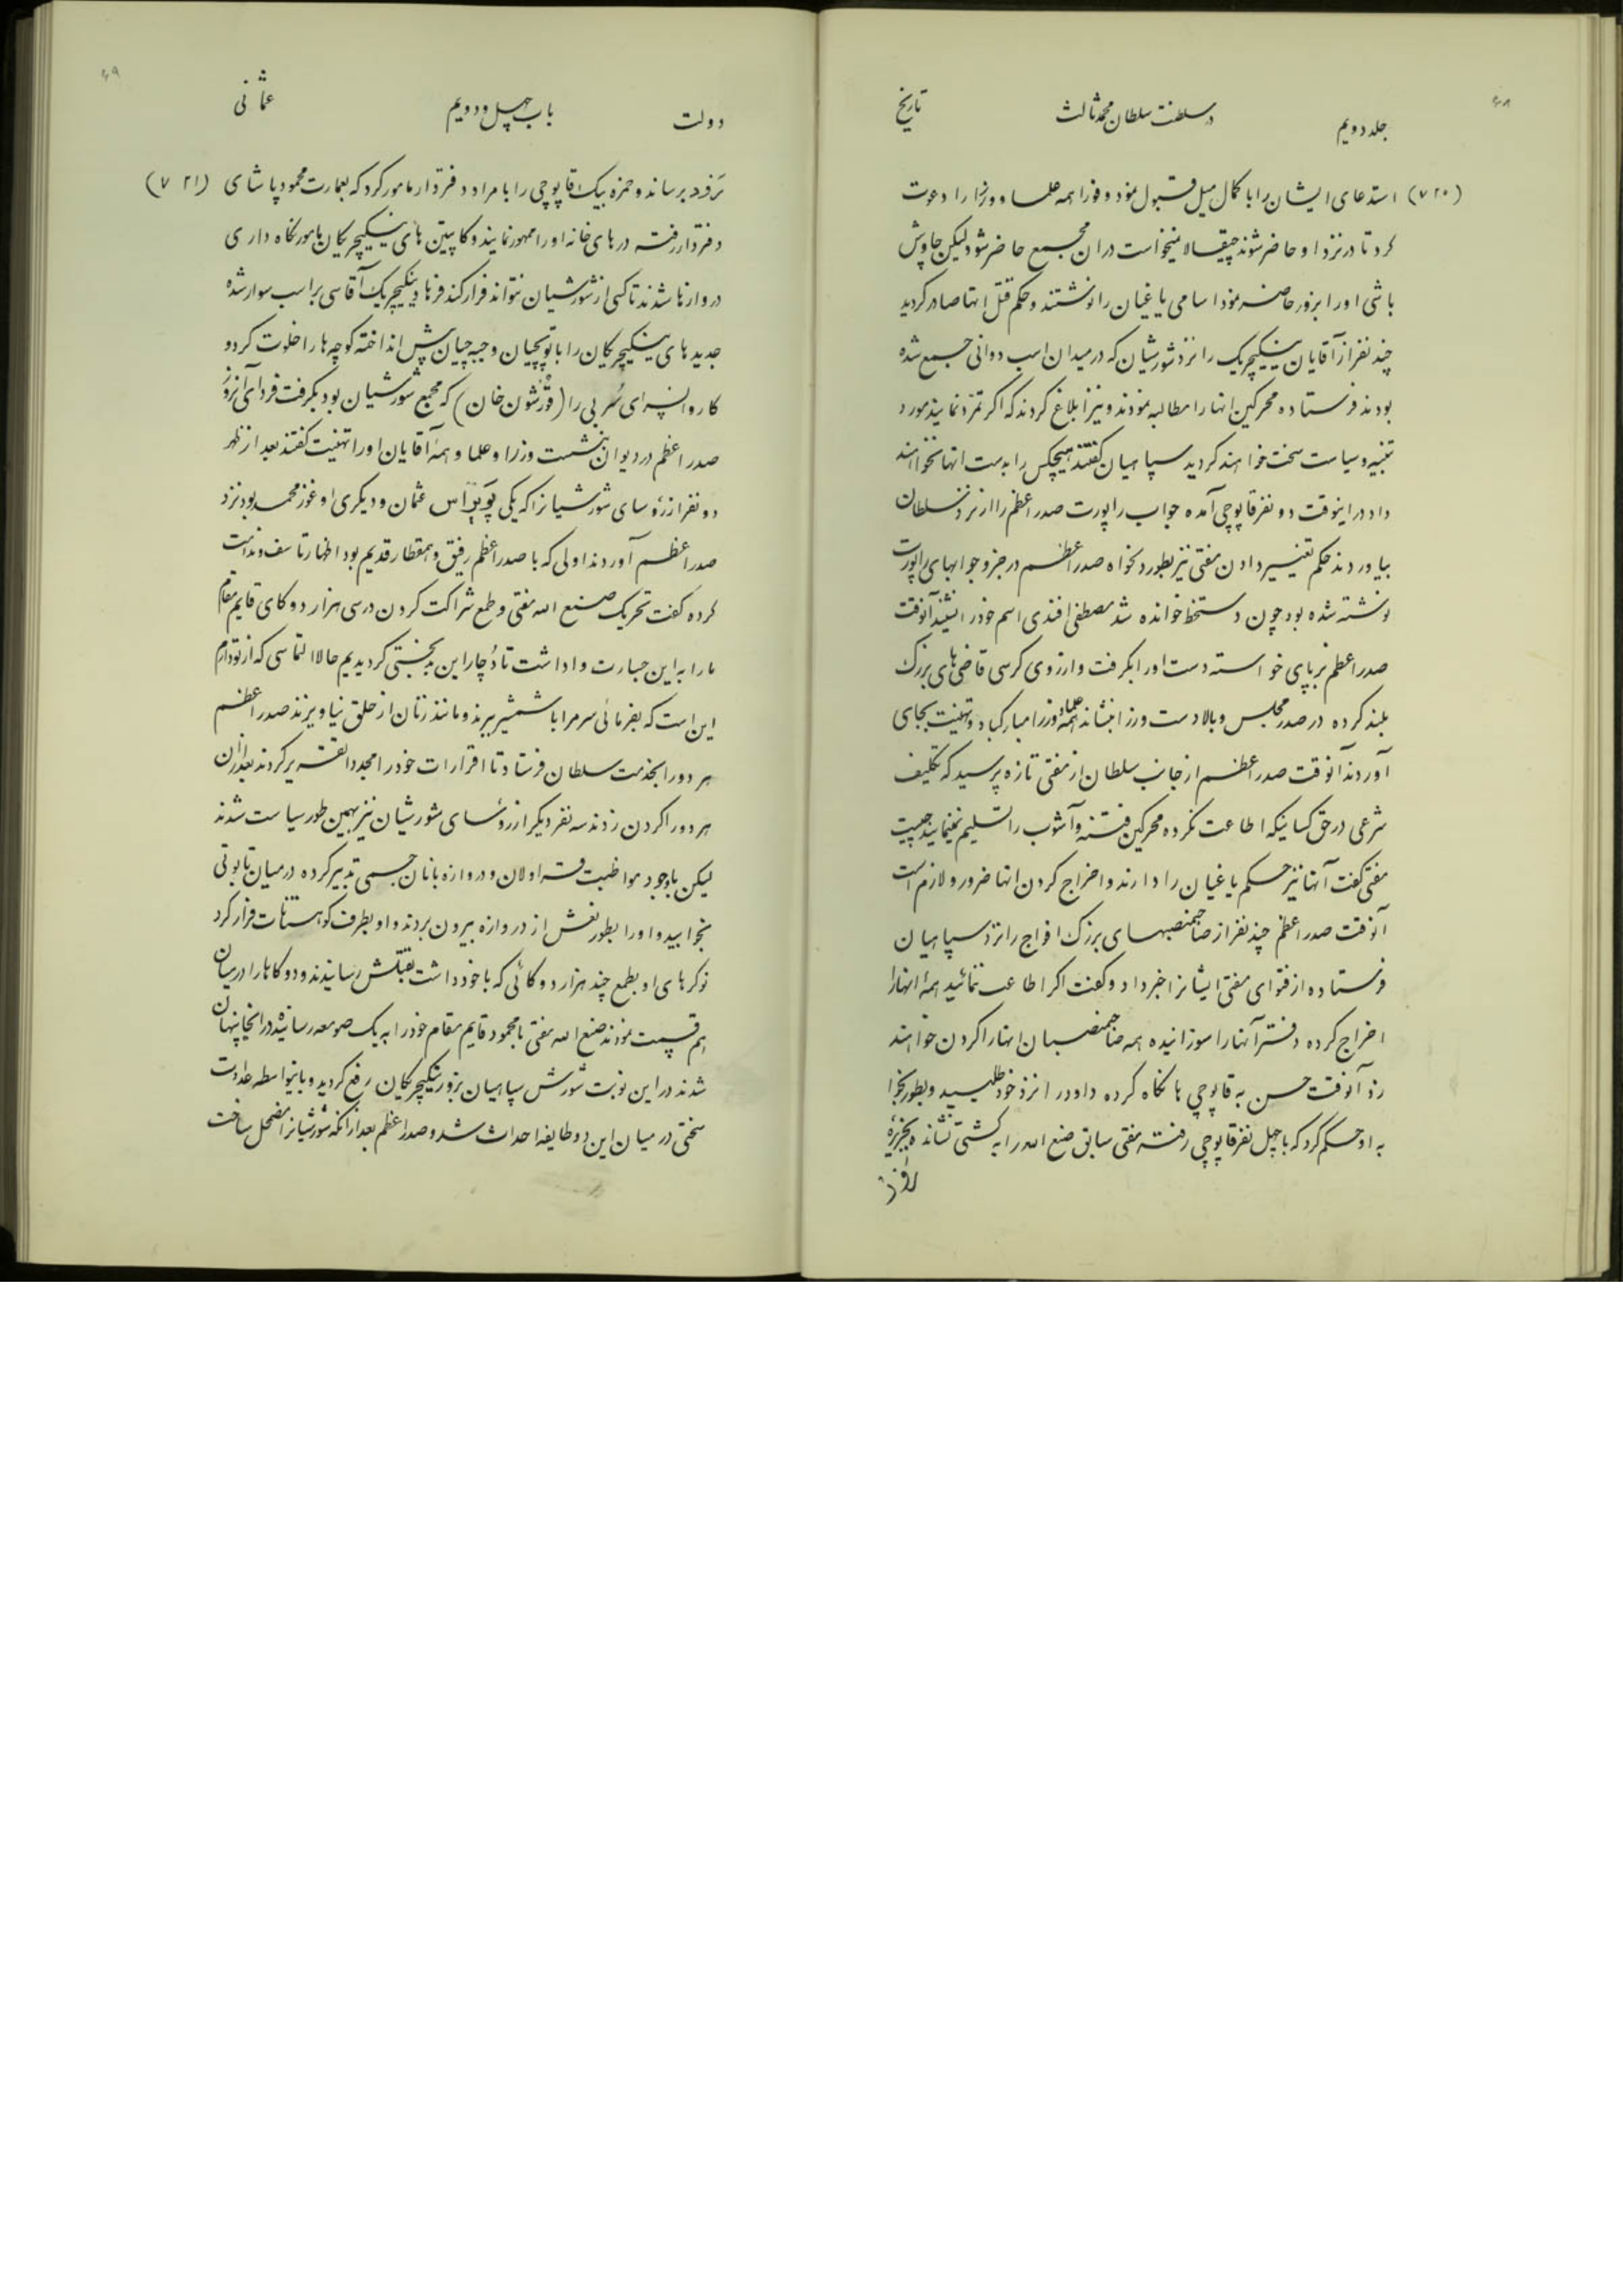 جلد دویم در سلطنت سلطان محمد ثالث تاریخ
(۷۲۰) استدعای ایشان را با کمال میل قبول نمود و فوراً همه علما و وزرا را دعوت
کرد تا در نزد او حاضر شوند چیقالا نمیخواست در ان مجمع حاضر شود لیکن چاوش
باشی او را بزور حاضر نمود اسامی یاغیان را نوشتند و حکم قتل انها صادر گردید
چند نفر از آقایان ینیکیچریک را نزد شورشیان که در میدان اسب دوانی جمع شده
بودند فرستاده محرکین انها را مطالبه نمودند و نیز ابلاغ کردند که اکر تمرد نمایند مورد
تنبیه و سیاست سخت خواهند کردید سپاهیان کفتند هیچکس را بدست انها نخواهند
داد در اینوقت دو نفر قاپوچی آمده جواب راپورت صدر اعظم را از نزد سلطان
بیاوردند حکم تغییر دادن مفتی نیز بطور دلخواه صدر اعظم در جزو جوابهای راپورت
نوشته شده بود چون دستخط خوانده شد مصطفی افندی اسم خود را شنید آنوقت
صدر اعظم برپای خواسته دست او را بکرفت و از روی کرسی قاضی های بزرک
بلند کرده در صدر مجلس و بالا دست وزرا بنشاند همه علما و وزرا مبارکباد و تهنیت بجای
آوردند آنوقت صدر اعظم از جانب سلطان از مفتی تازه پرسید که تکلیف
شرعی در حق کسانیکه اطاعت نکرده محرکین فتنه و آشوب را تسلیم نمینمایند چیست
مفتی کفت آنها نیز حکم یاغیان را دارند و اخراج کردن انها ضرور و لازم است
آنوقت صدر اعظم چند نفر از صاحبمنصبهای بزرک افواج را نزد سپاهیان
فرستاده از فتوای مفتی ایشانرا خبر داد و کفت اکر اطاعت ننمائید همهٔ انها را
اخراج کرده دفتر آنها را سوزانیده همه صاحبمنصبان انها را کردن خواهند
زد آنوقت حسن به قاپوچی ها نکاه کرده داود را نزد خود طلبید و بطور نجوا
به او حکم کرد که با چهل نفر قاپوچی رفته مفتی سابق صنع الله را به کشتی نشانده بجزیرهٔ
دولت باب چهل و دویم عثمانی
برساند و حمزه بیک قاپوچی را با مراد دفتردار مامور کرد که بعمارت محمود پاشای (۷۲۱)
دفتردار رفته درهای خانه او را ممهور نمایند و کاپیتن های ینیکیچریکان مامور نکاه داری
دروازها شدند تا کسی از شورشیان نتواند فرار کند فرهاد ینیکیچریک آقاسی بر اسب سوار شده
جدیدهای ینیکیچریکان را با توپچیان و جبه چیان پیش انداخته کوچه ها را خلوت کرد و
کاروانسرای سُربی را (قورشون خان) که مجمع شورشیان بود بکرفت فردای آنروز
صدر اعظم در دیوان بنشست وزرا و علما و همهٔ آقایان او را تهنیت کفتند بعد از ظهر
دو نفر از رؤسای شورشیانرا که یکی پویراس عثمان و دیکری اوغوز محمد بود نزد
صدر اعظم آوردند اولی که با صدر اعظم رفیق و همقطار قدیم بود اظهار تاسف و ندامت
کرده کفت تحریک صنع الله مفتی و طمع شراکت کردن در سی هزار دوکای قایم مقام
ما را به این جسارت واداشت تا دُچار این بدبختی کردیدیم حالا التماسی که از تو دارم
این است که بفرمائی سر مرا با شمشیر ببرند و مانند زنان از حلق نیاویزند صدر اعظم
هر دو را بخدمت سلطان فرستاد تا اقرارات خود را مجدداً تقریر کردند بعد از ان
هر دو را کردن زدند سه نفر دیکر از رؤسای شورشیان نیز بهمین طور سیاست شدند
لیکن باوجود مواظبت قراولان و دروازه بانان جسمی تدبیر کرده در میان تابوتی
بخوابید و او را بطور نعش از دروازه بیرون بردند و او بطرف کوهستانات فرار کرد
نوکرهای او بطمع چند هزار دوکائی که با خود داشت بقتلش رسانیدند و دوکاها را در میان
هم قسمت نمودند صنع الله مفتی با محمود قایم مقام خود را به یک صومعه رسانیده در انجا پنهان
شدند در این نوبت شورش سپاهیان بزور ینیکیچریکان رفع کردید و باینواسطه عداوت
سختی در میان این دو طایفه احداث شد و صدر اعظم بعد از انکه شورشیانرا مضمحل ساخت